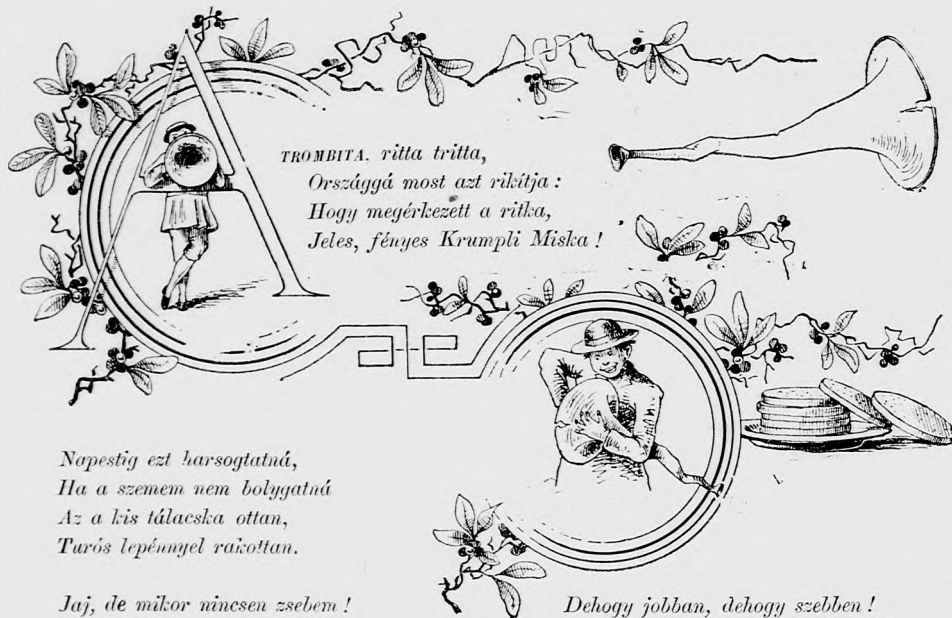 A TROMBITA, ritta tritta,
Országgá most azt rikítja :
Hogy megérkezett a ritka,
Jeles, fényes Krumpli Miska !
Napestig ezt harsogtatná,
Ha a szemem nem bolygatná
Az a kis tálacska ottan,
Turós lepénnyel rakottan.
Jaj, de mikor nincsen zsebem !
Dehogy jobban, dehogy szebben !